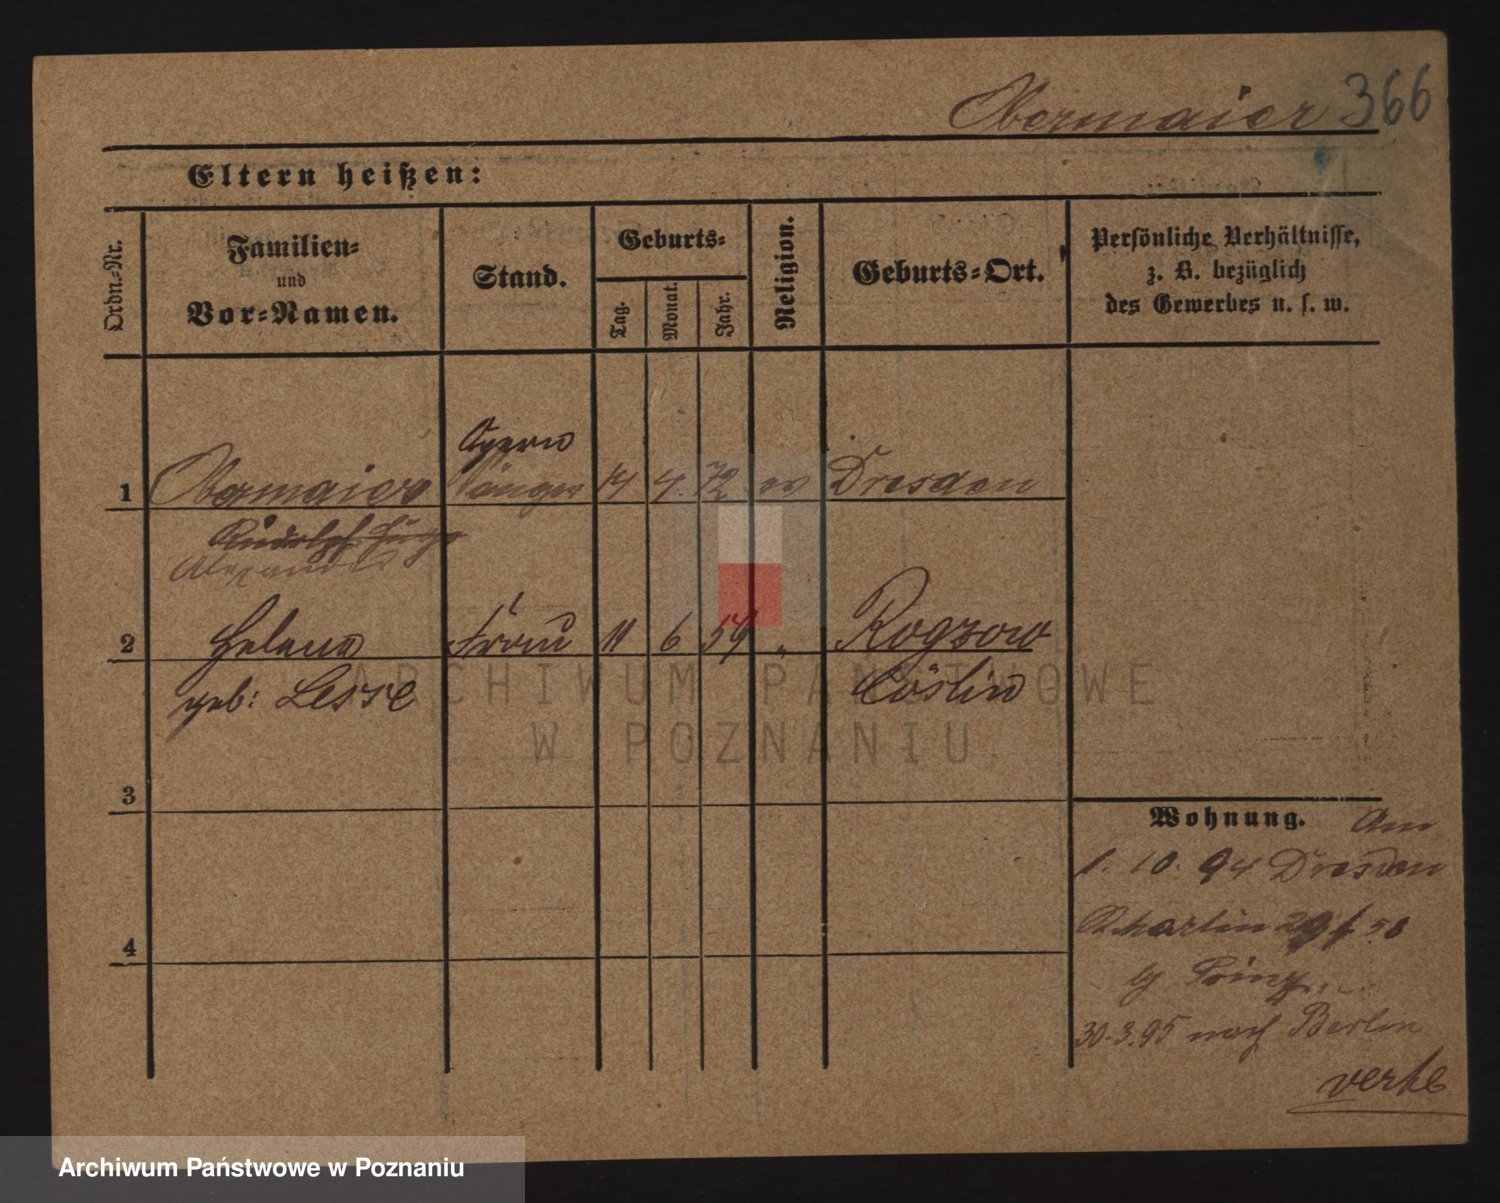 Obermaier 366
Eltern heißen:
Ordn.-Nr.
Familien-
und
Vor-Namen.
Stand.
Geburts-
Tag.
Monat.
Jahr.
Religion.
Geburts-Ort.
Persönliche Verhältnisse,
z. B. bezüglich
des Gewerbes u. s. w.
Opern
1 Obermaier Sänger 14 4. 72 ev Dresden
Rudolph Hugo
Alexander
2 Helene Frau 11 6 54 „ Rogzow
geb: Lesse Cöslin
ARCHIWUM PAŃSTWOWE
W POZNANIU
3
4
Wohnung. Am
1. 10. 94 Dresden
St. Martin 29
30.3.95 nach Berlin
Archiwum Państwowe w Poznaniu